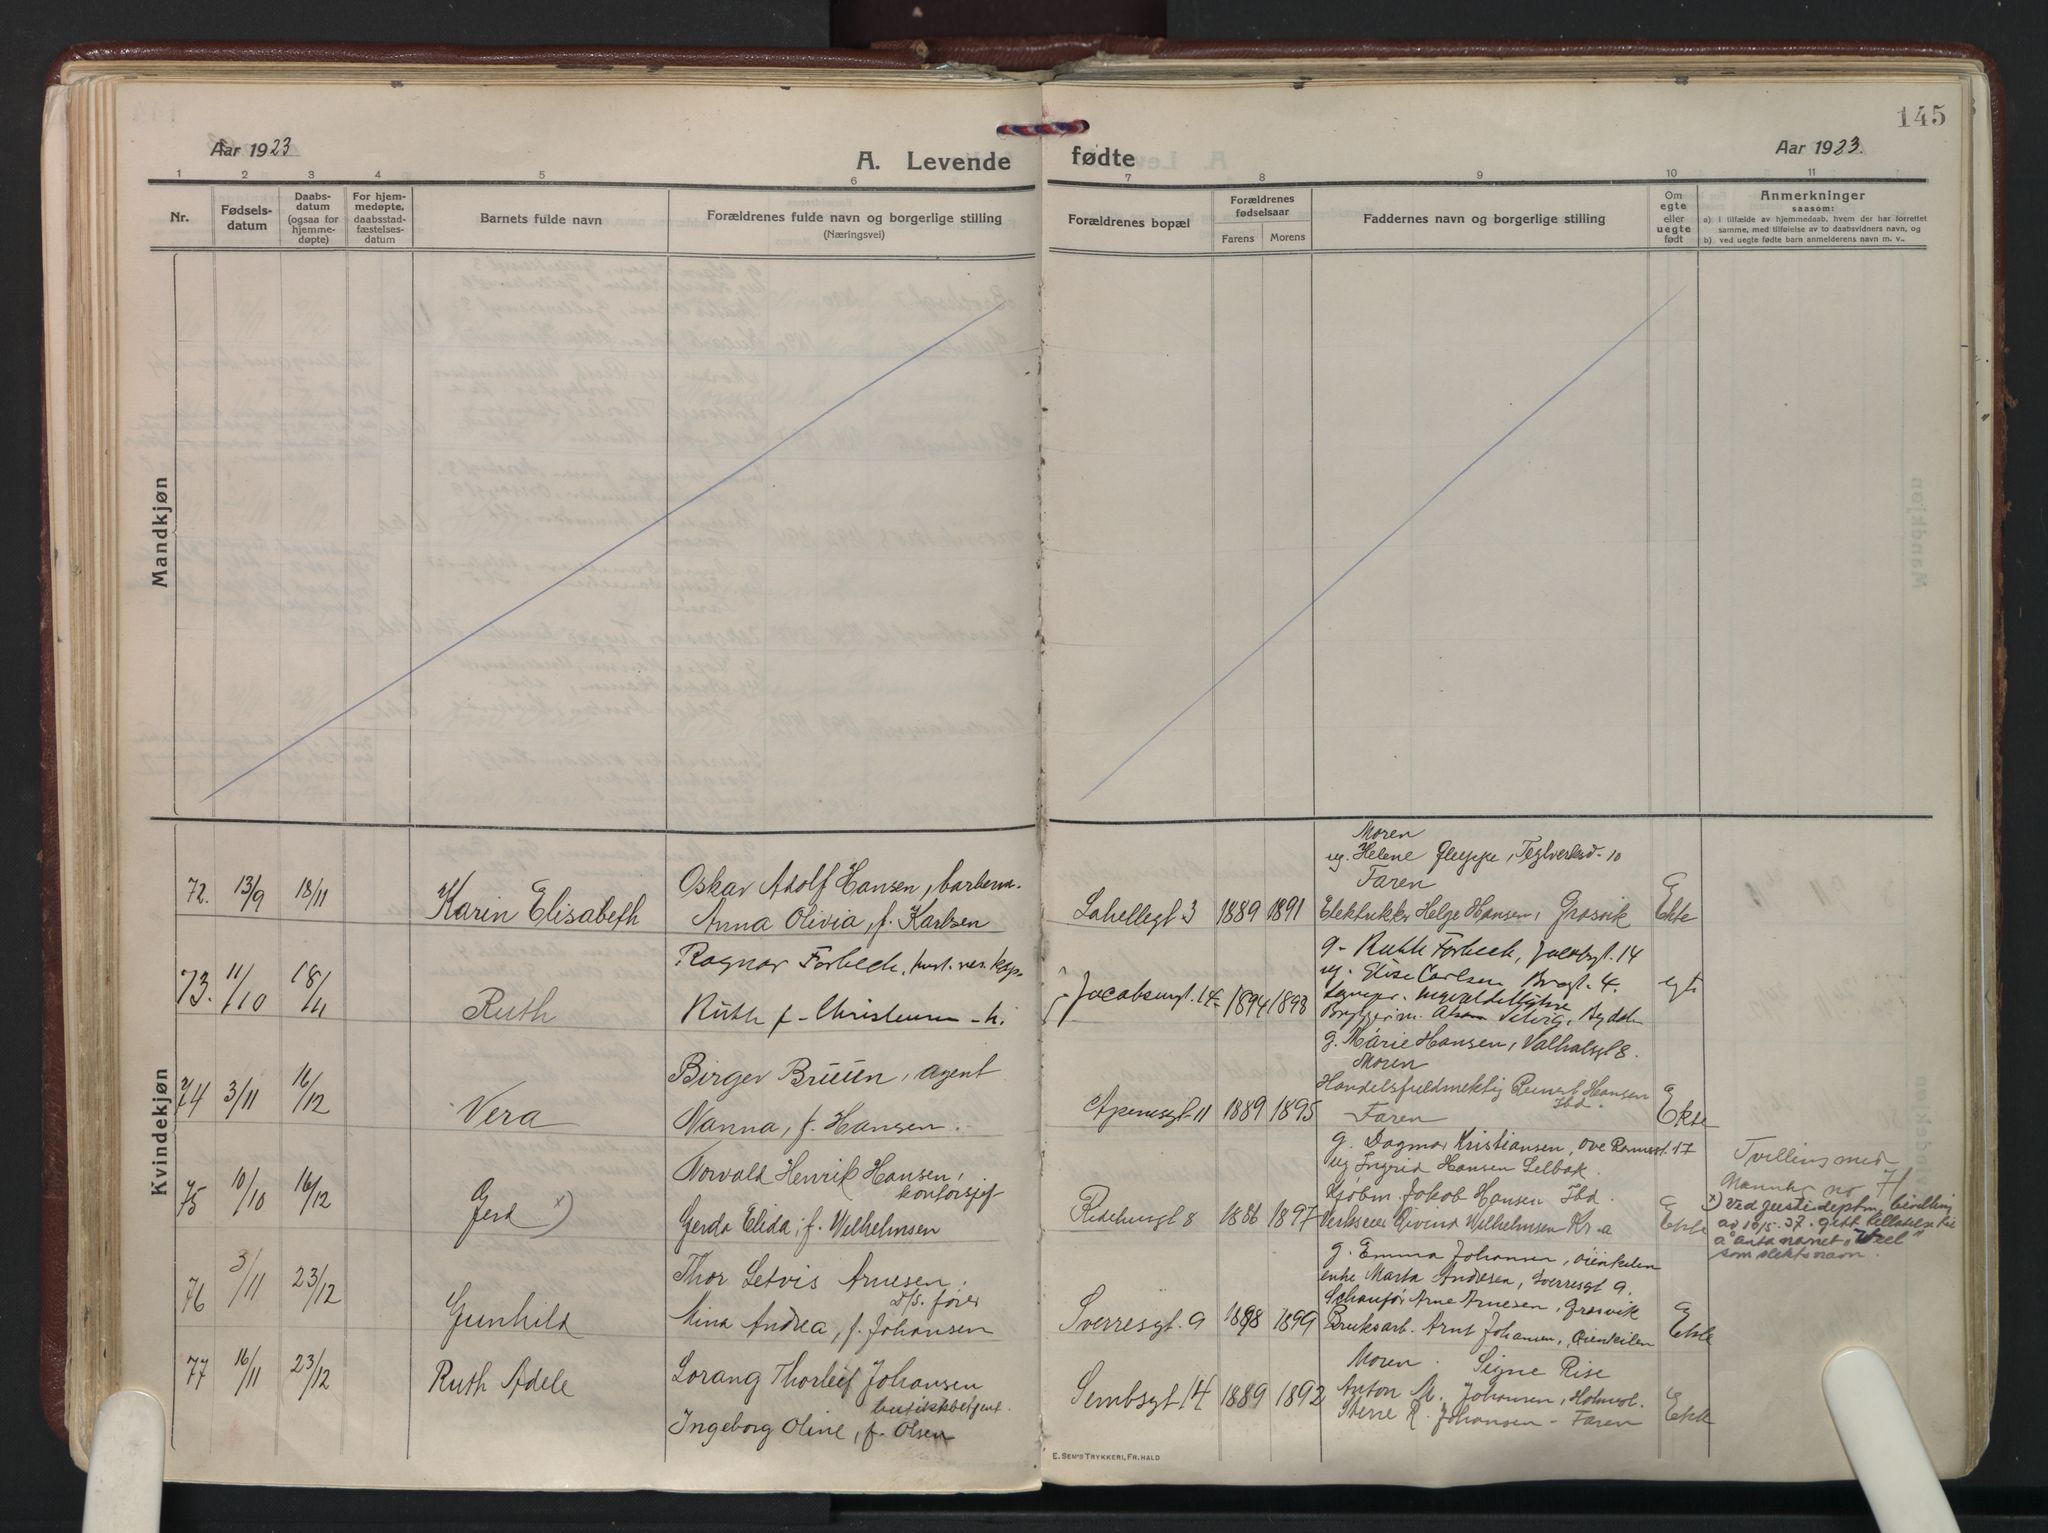 145
Aar 1923
A. Levende
fødte
Aar 1923.
1 2 3 4 5 6 7 8 9 10 11
Nr.
Fødsels-
datum
Daabs-
datum
(ogsaa for
hjemme-
døpte)
For hjem-
medøpte,
daabsstad-
fæstelses-
datum
Barnets fulde navn
Forældrenes fulde navn og borgerlige stilling
(Næringsvei)
Forældrenes bopæl
Forældrenes
fødselsaar
Farens Morens
Faddernes navn og borgerlige stilling
Om
egte
eller
uegte
født
Anmerkninger
saasom:
a) i tilfælde av hjemmedaab, hvem der har forrettet
samme, med tilføielse av to daabsvidners navn, og
b) ved uegte fødte barn anmelderens navn m. v..
Mandkjøn
Kvindekjøn
72. 13/9 18/11
Karin Elisabeth
Oskar Adolf Hansen,
Anna Olivia, f. Karlsen
Lahellegt 3 1889 1891
Moren
ug. Helene Gleppe, Teglverksv. 10
Faren
Elektriker Helge Hansen, Gresvik
Ekte
73. 11/10 18/11
Ruth
Ragnar Forbech,
Ruth f. Christensen
Jacobsengt. 14 1894 1898
g. Ruth Forbech, Jacobsgt. 14
ug. Elise Carlsen Brogt. 4.
egte
74 3/11 16/12
Vera
Birger Bruun, agent
Nanna, f. Hansen.
Apenesgt 11 1889 1895
g. Marie Hansen, Valhalsgt 8.
Moren
Handelsfuldmektig Hansen
Ibd.
Faren
Ekte
75 10/10 16/12
Gerd x)
Torvald Henrik Hansen,
kontorsjef
Gerda Elida, f. Wilhelmsen
Ridehusgt 8 1886 1897
g. Dagmar Kristiansen, 17
ug Ingrid Hansen Selbak.
Kjøbm. Jakob Hansen Ibd.
Verkseier Øivind Wilhelmsen Kr.a
Ekte
Tvilling med
Mannkj no 71
x) Ved justisdeptm. bevilling
av 10/5. 37. gitt tillatelse til
å anta navnet
som slektsnavn.
76 3/11 23/12
Gunhild
Thor Arnesen,
D/S. fører
Mina Andrea, f. Johansen
Sverresgt. 9 1898 1899
g. Emma Johansen, Øienkilen
enke Marta Andresen, Sverresgt 9.
Schaufør Arne Arnesen, Gresvik
Bruksarb. Arnt Johansen, Øienkilen
Ekte
77 16/11 23/12
Ruth Adele
Lorang Thorleif Johansen
butikkbetjent.
Ingeborg Oline, f. Olsen
Sembsgt 14 1889 1892
Moren. Signe Rise
Anton M. Johansen, Holmeg.
R. Johansen - Faren
Ekte
E. SEM'S TRYKKERI, FR.HALD